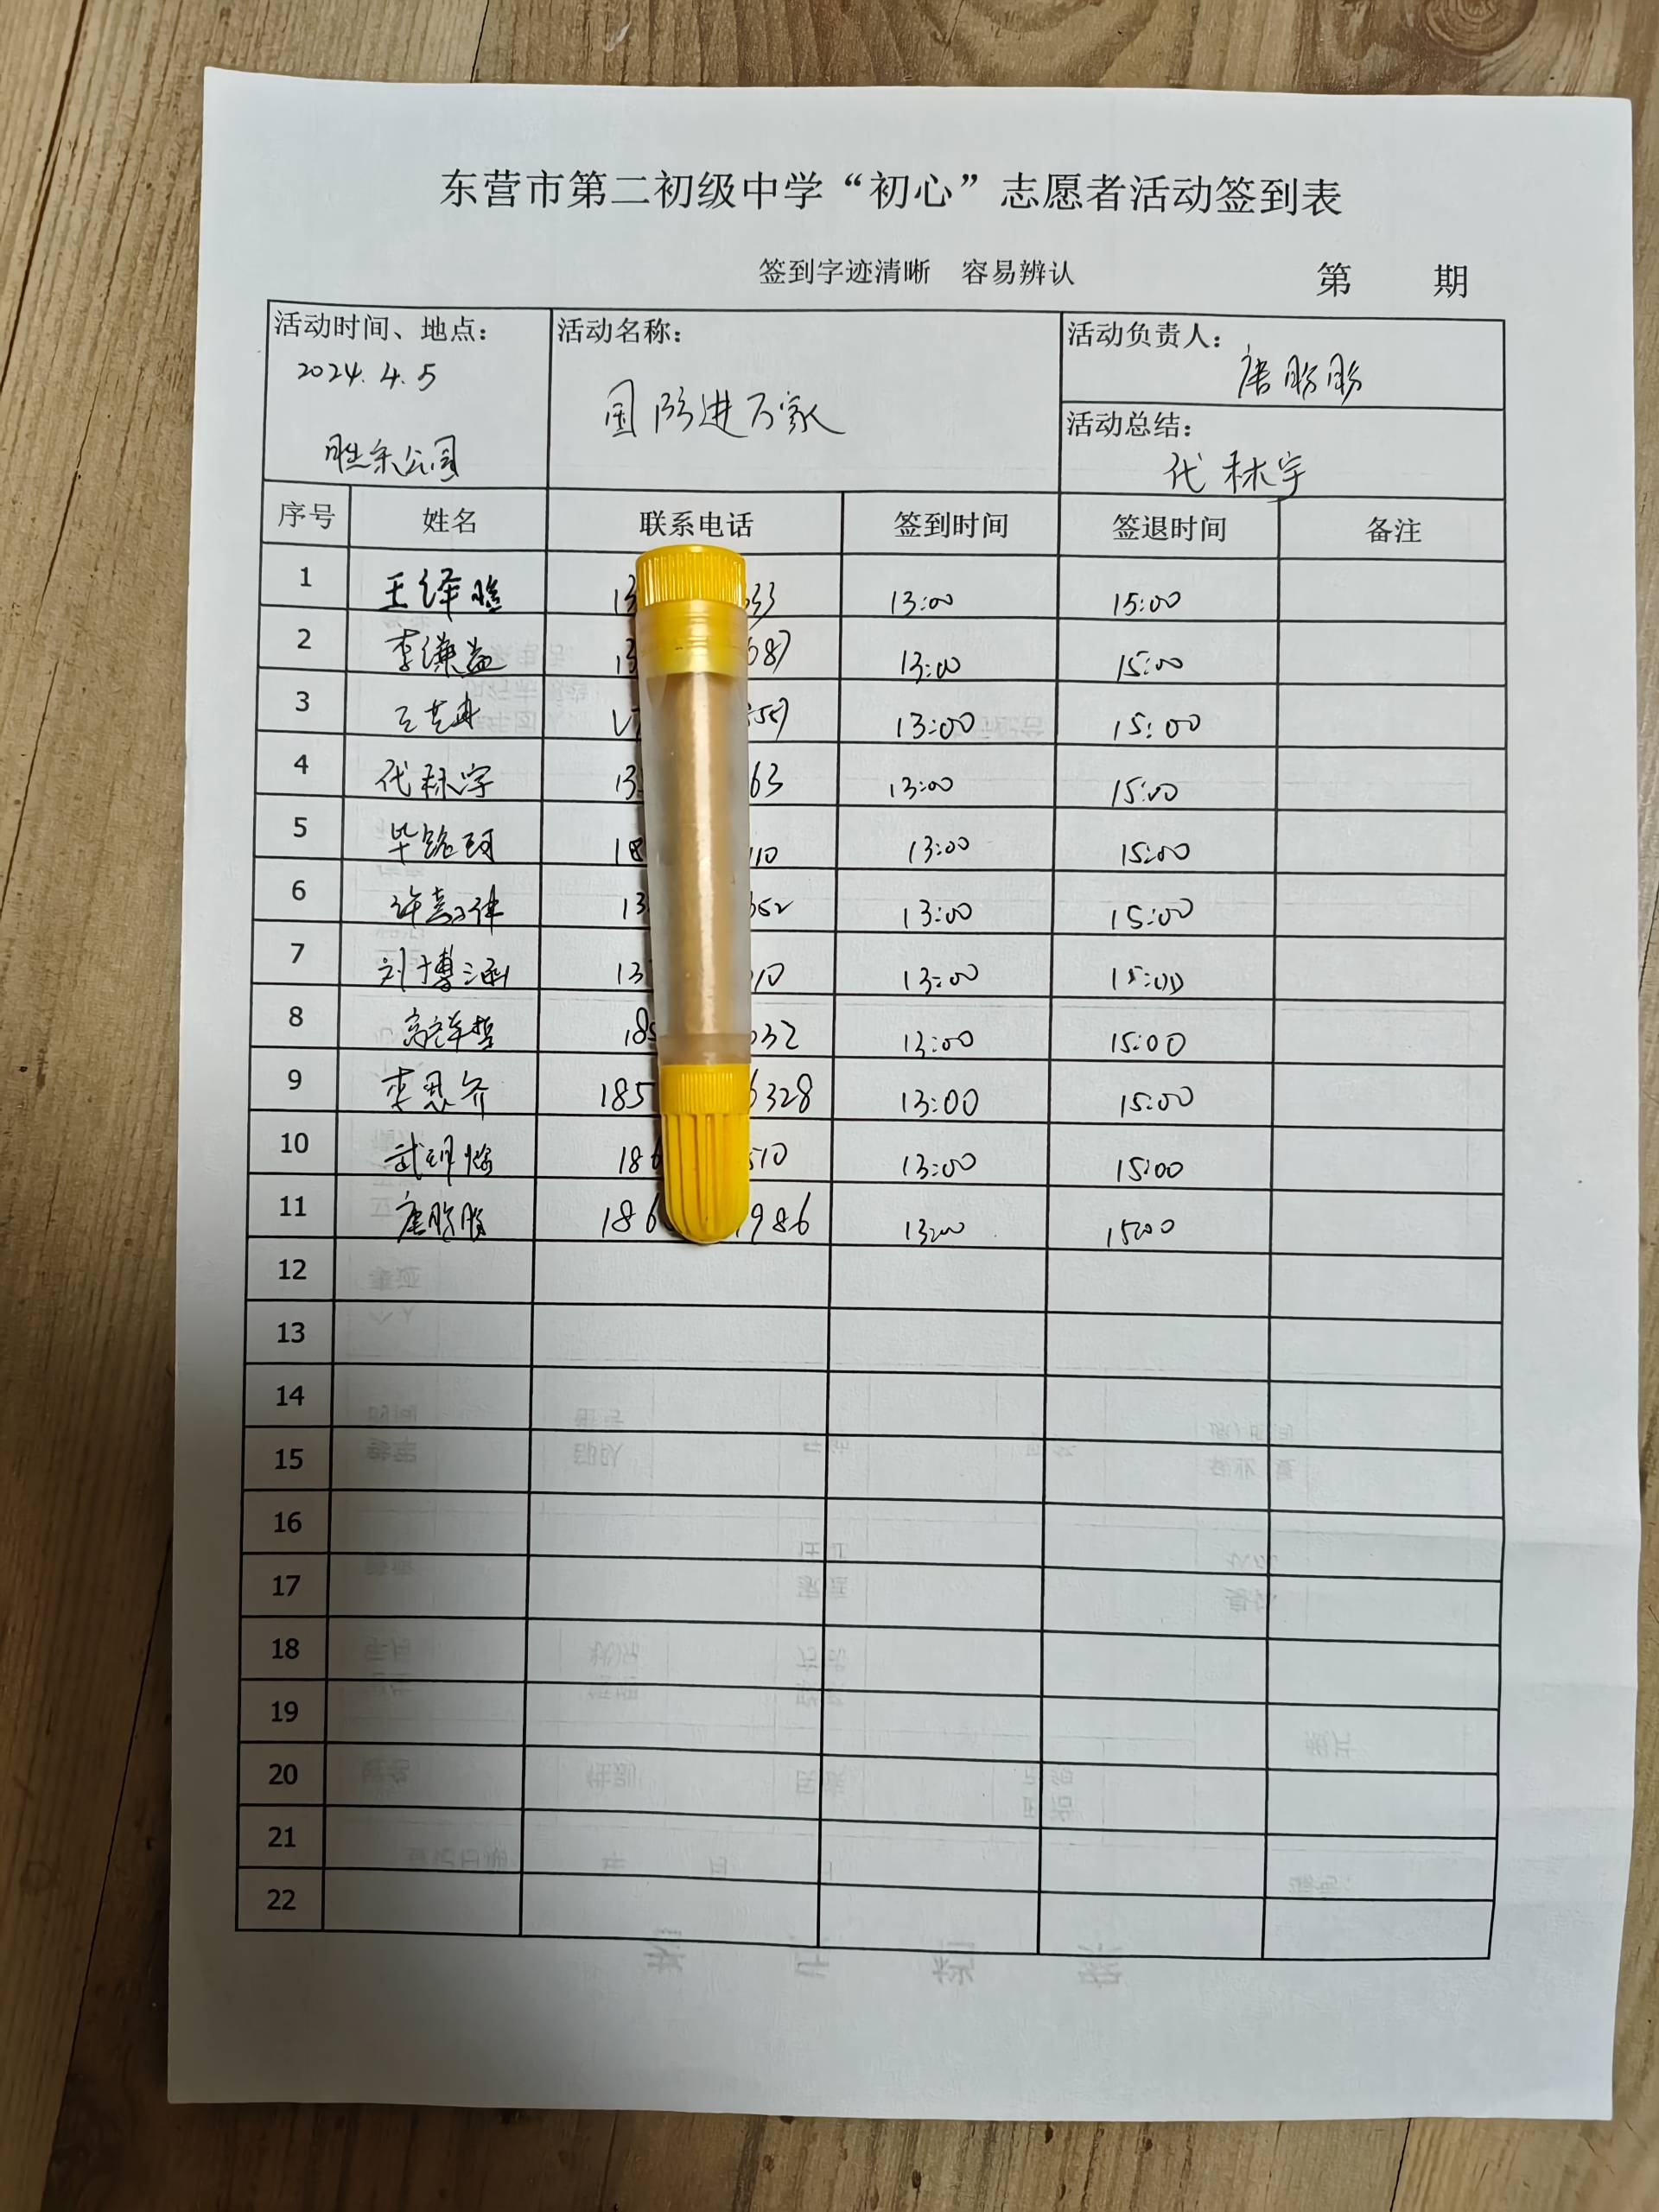 东营市第二初级中学“初心”志愿者活动签到表
签到字迹清晰 容易辨认
第 期
活动时间、地点：
2024.4.5
公园
活动名称：
国防进万家
活动负责人：
唐盼盼
活动总结：
代林宇
序号 姓名 联系电话 签到时间 签退时间 备注
1 王泽 13 33 13:00 15:00
2 李谦益 13 687 13:00 15:00
3 557 13:00 15:00
4 代林宇 13 63 13:00 15:00
5 毕 18 110 13:00 15:00
6 许 13 352 13:00 15:00
7 刘博涵 13 10 13:00 15:00
8 185 032 13:00 15:00
9 李恩 185 6328 13:00 15:00
10 武玥 186 510 13:00 15:00
11 唐盼盼 186 1986 13:00 15:00
12
13
14
15
16
17
18
19
20
21
22